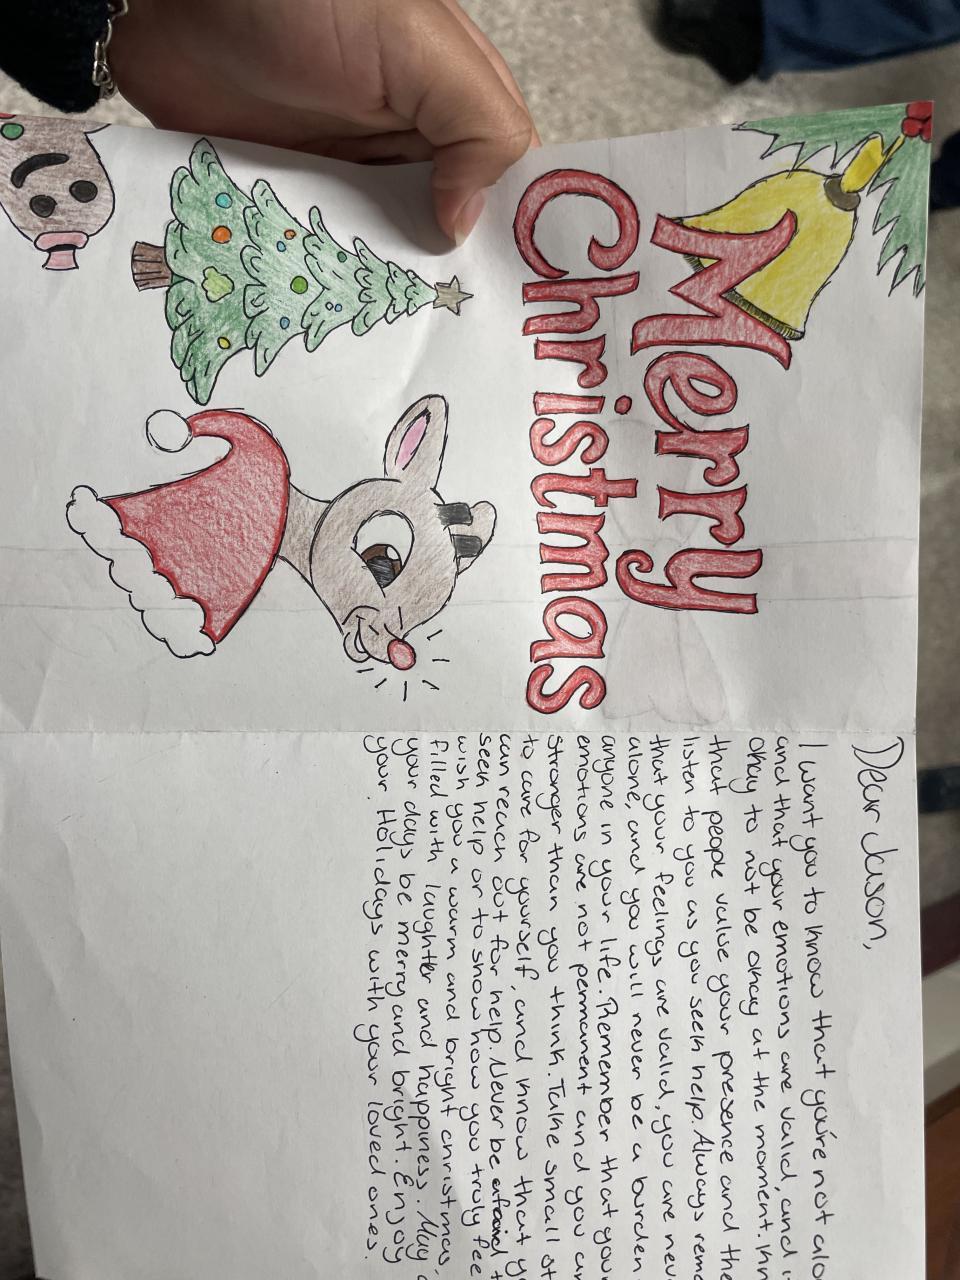 Merry
Christmas
Dear Jason,
I want you to know that you're not
and that your emotions are valid, and
okay to not be okay at the moment.
that people value your presence and
listen to you as you seek help. Always
that your feelings are valid, you are
alone, and you will never be a burden
anyone in your life. Remember that your
emotions are not permanent and you
stronger than you think. Take small
to care for yourself, and know that
can reach out for help. Never be afraid
seek help or to show how you truly
wish you a warm and bright christmas,
filled with laughter and happiness. May
your days be merry and bright. Enjoy
your Holidays with your loved ones.